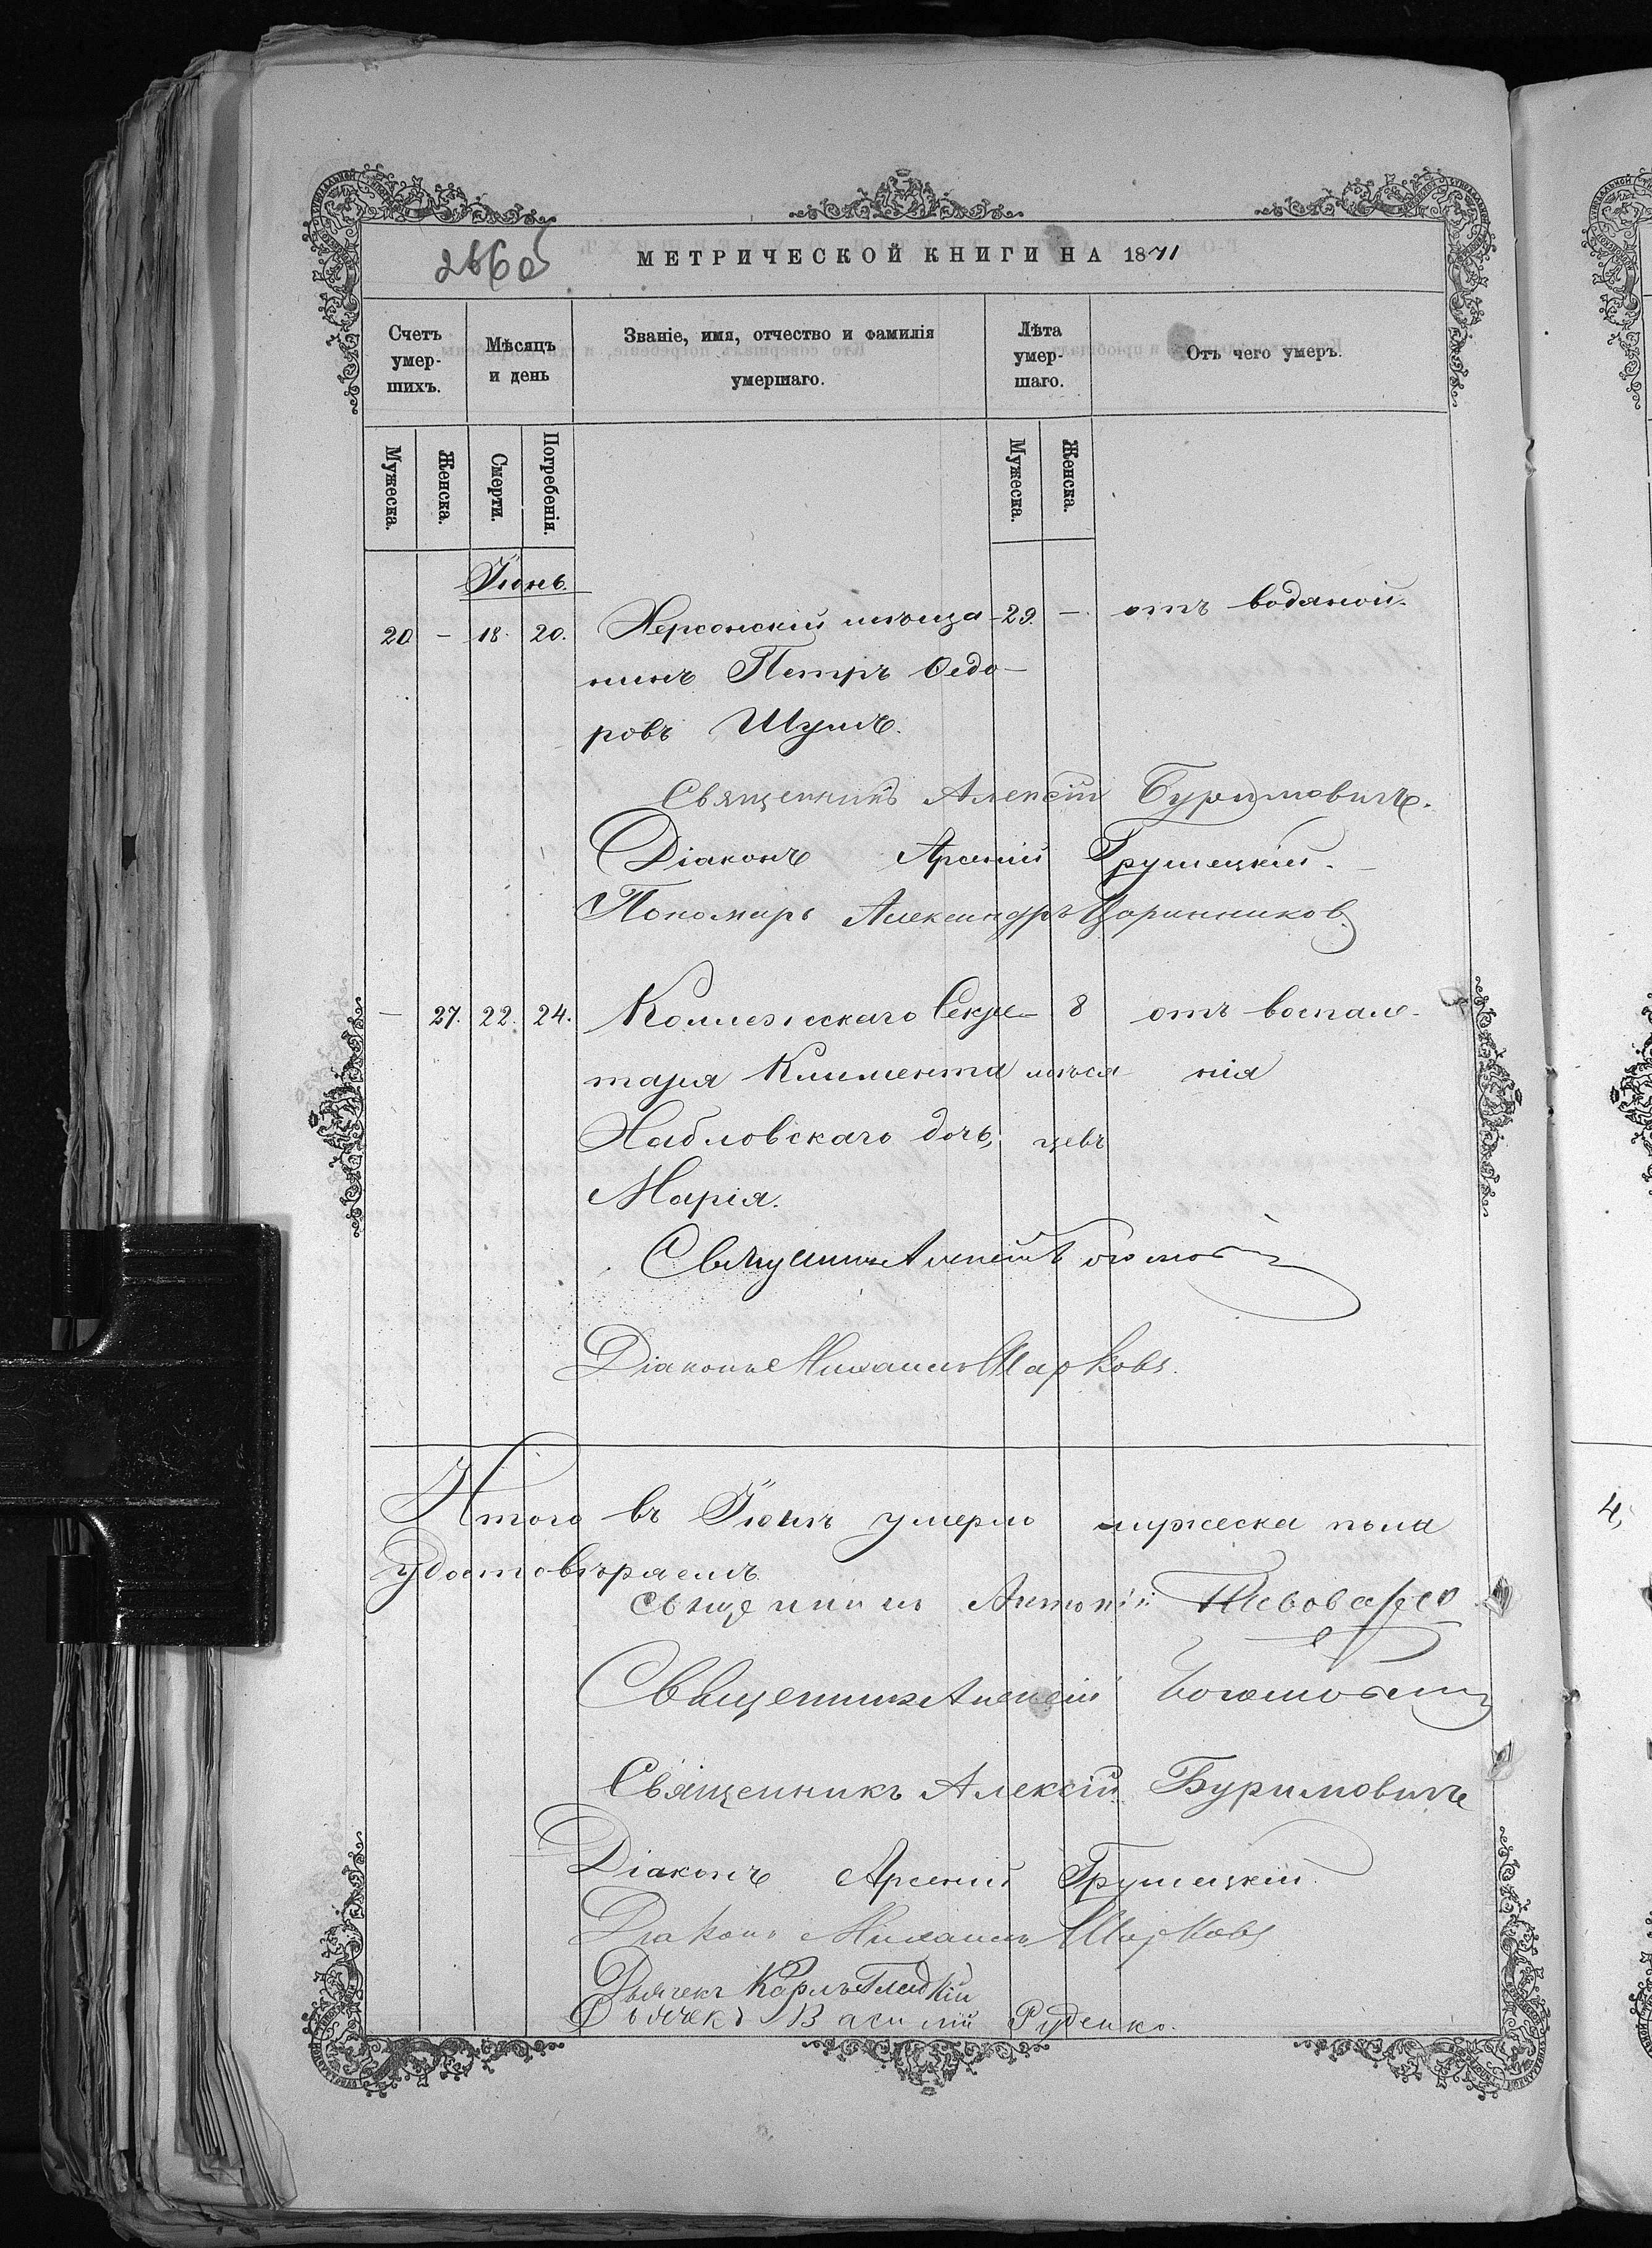 МЕТРИЧЕСКОЙ КНИГИ НА 1871
Счетъ умер-шихъ.
Мѣсяцъ и день
Званіе, имя, отчество и фамилія умершаго.
Лѣта умер-шаго.
Отъ чего умеръ.
Мужеска.
Женска.
Смерти.
Погребенія.
Мужеска.
Женска.
Іюнь.
20 – 18. 20. Херсонскій мѣща- 29. – отъ водяной.
нинъ Петръ Ѳедо-
ровъ Шумъ.
Священникъ Алексій Буримовичъ.
Діаконъ Арсеній Грушецкій.
Пономарь Александръ
– 27. 22. 24. Коллежскаго Секре- 8 отъ воспале-
таря Климента мѣся нія
Хабловскаго дочь, цевъ
Марія.
Священникъ Алексій
Діаконъ Михаилъ Шарковъ.
Итого въ Іюнѣ умерло мужеска пола
удостовѣряемъ
Священникъ Антоній
Священникъ Алексій
Священникъ Алексій Буримовичъ
Діаконъ Арсеній Грушецкій.
Діаконъ Михаилъ Шарковъ
Дьячекъ Карлъ Гладкій
Дьячекъ Василій Руденко.
4,